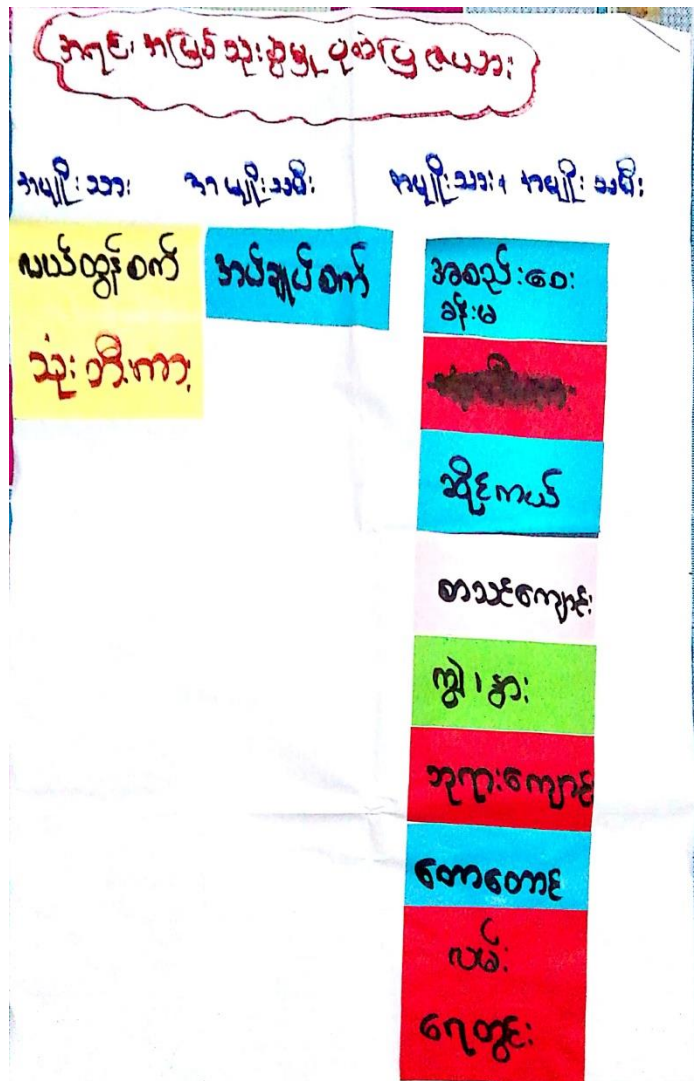 အရင်းအမြစ်သုံးစွဲမှု ပုံစံပြ ဇယား
အမျိုးသား အမျိုးသမီး အမျိုးသား၊ အမျိုးသမီး
လယ်ထွန်စက်
သုံးဘီးကား
အပ်ချုပ်စက်
အစည်းဝေး
ခန်းမ
ဆိုင်ကယ်
စာသင်ကျောင်း
ကျွဲ၊ နွား
ဘုရားကျောင်း
တောတောင်
လမ်း
ရေတွင်း